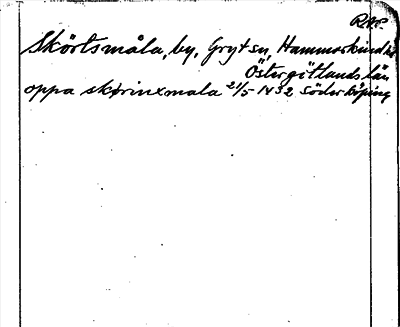 Skörtsmåla, by, Gryt sn, Hammarkinds hd
Östergötlands län
oppa skørinxmala 21/5 1432 Söderköping